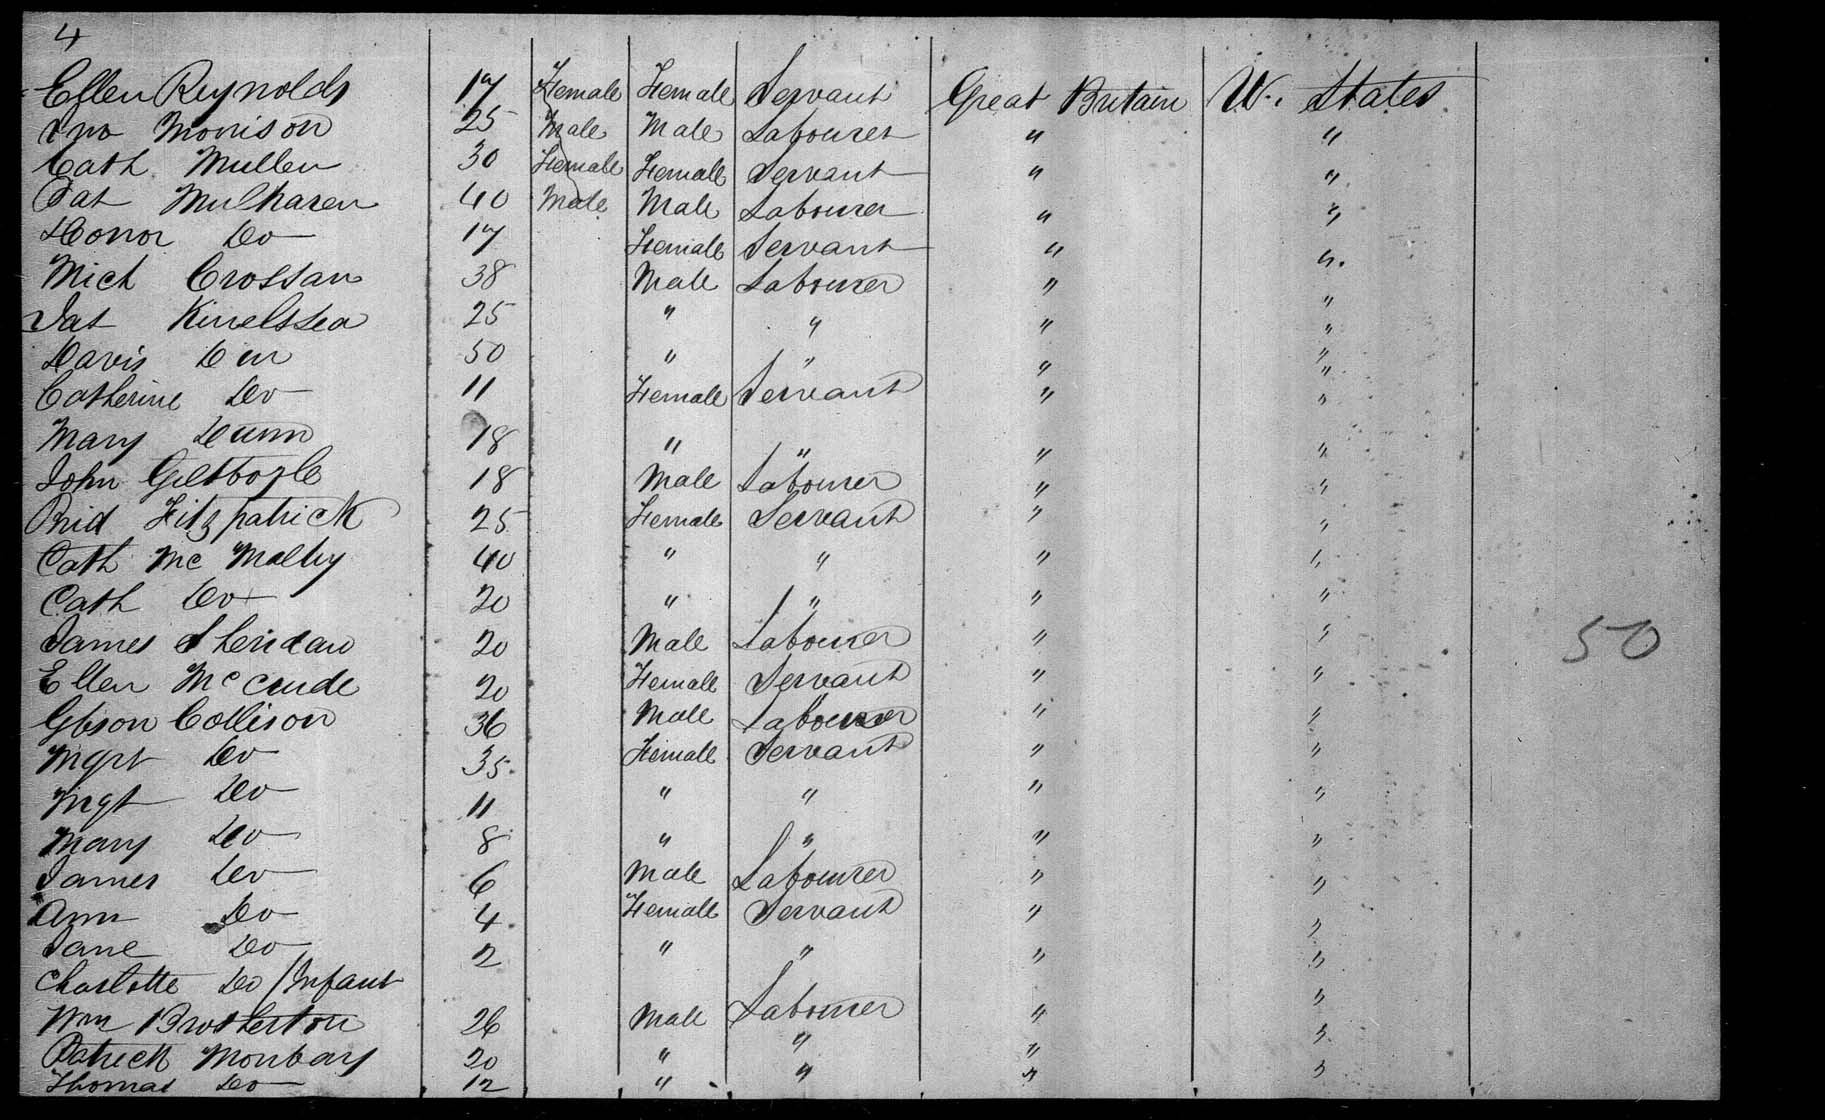 4
Ellen Reynolds 17 Female Female Servant Great Britain U. States
Jno Morrison 25 Male Male Labourer " "
Cath Mullen 30 Female Female Servant " "
Pat Mulharen 40 Male Male Labourer " "
Honor Do 17 Female Servant " "
Mich Crossan 38 Male Labourer " "
Pat 25 " " " "
Davis 50 " " " "
Catherine Do 11 Female Servant " "
Mary Dunn 18 " " " "
John Gilboyle 18 Male Labourer " "
Brid Fitzpatrick 25 Female Servant " "
Cath Mc Malty 40 " " " "
Cath Do 20 " " " "
James Sheridan 20 Male Labourer " "
Ellen McCrude 20 Female Servant " "
Gbson Collison 36 Male Labourer " "
Mgrt Do 35 Female Servant " "
Mgt Do 11 " " " "
Mary Do 8 " " " "
James Do 6 Male Labourer " "
Ann Do 4 Female Servant " "
Jane Do 2 " " " "
Charlotte Do / Infant "
Wm Brotherton 26 Male Labourer " "
Patrick Monbary 20 " " " "
Thomas Do 12 " " "
50